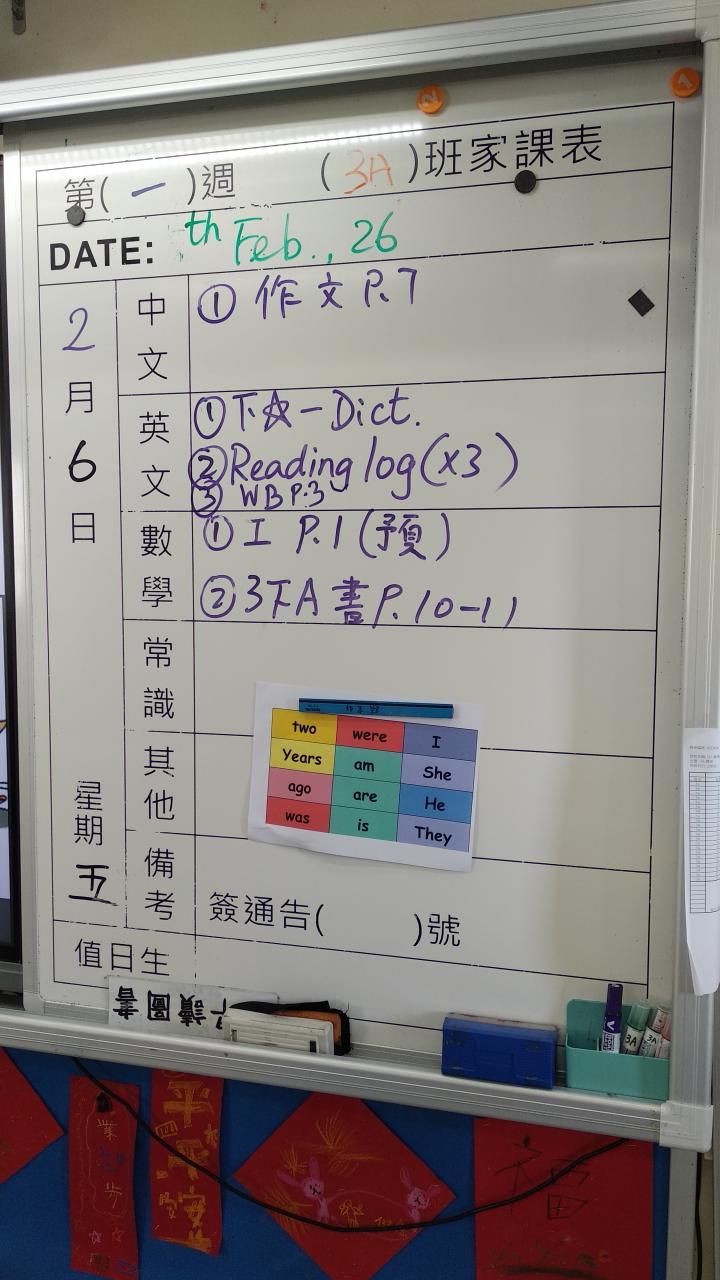 第(一)週 (3A)班家課表
DATE: th Feb., 26
2月6日
星期五
中文
① 作文 P.7
英文
① 下☆-Dict.
② Reading log (x3)
③ WB P.3
數學
① I P.1 (預)
② 3下A書 P.10-11
常識
其他
two were I
Years am She
ago are He
was is They
備考
簽通告( )號
值日生
讀圖書
3A
3A
平
安
福